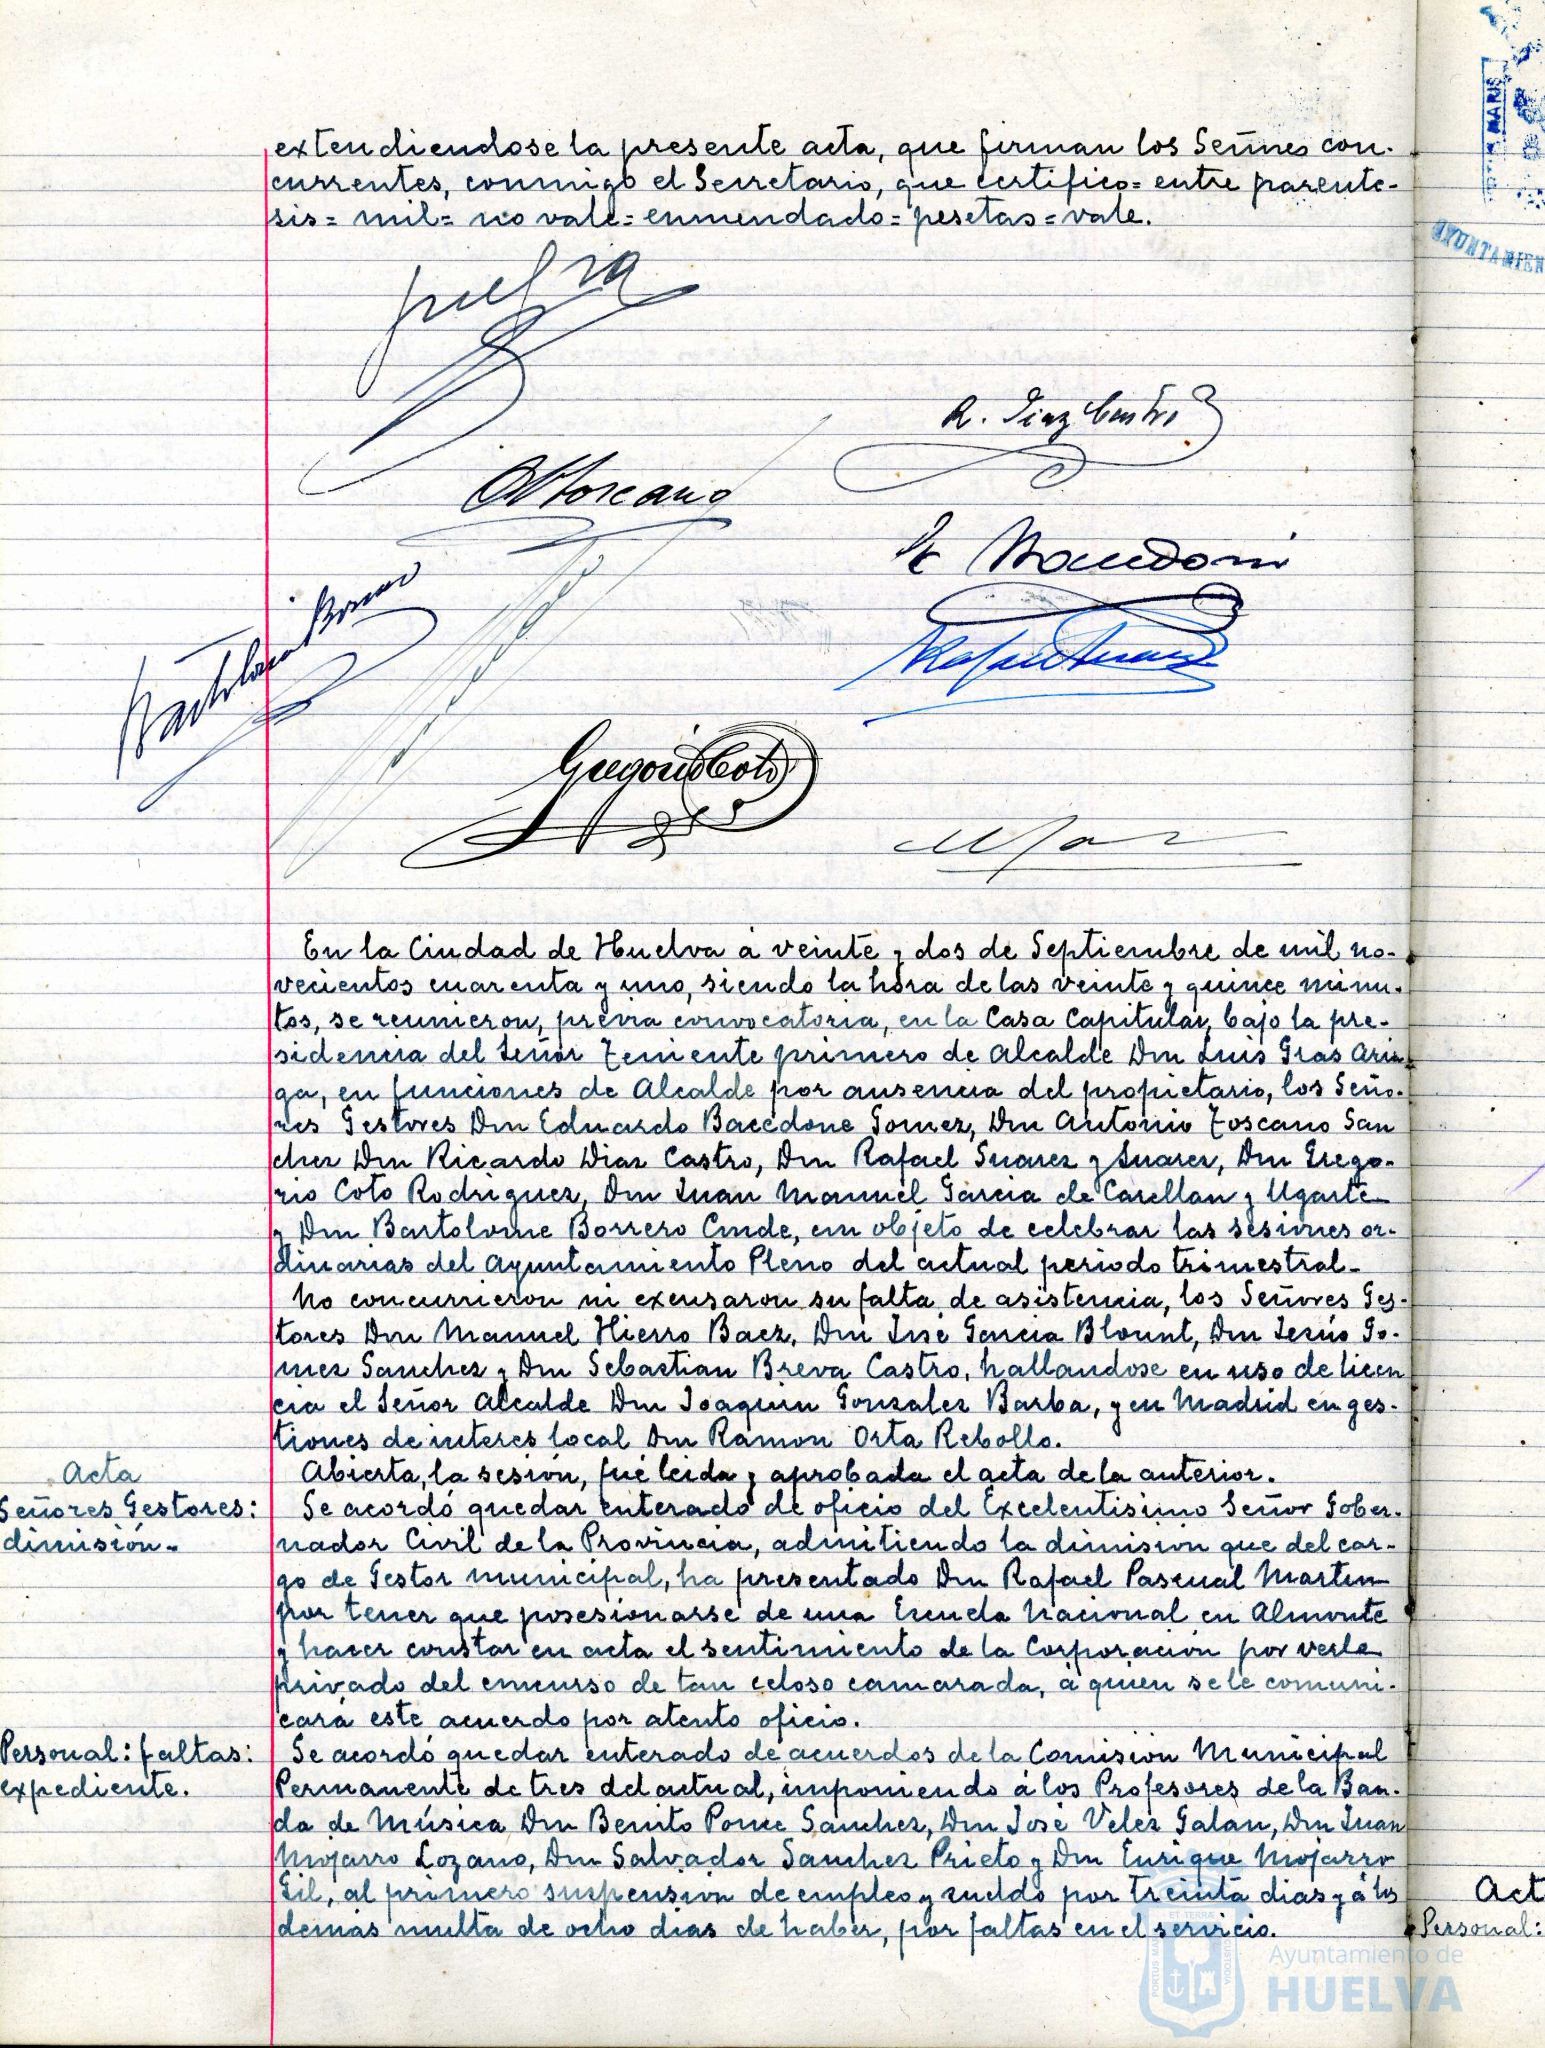 extendiendose la presente acta, que firman los Señores con-
currentes, conmigo el Secretario, que certifico= entre parente-
sis= mil= no vale= enmendado= pesetas= vale.
R. Diaz Castro
A Toscano
Bartolomé Borrero
Rafael Suarez
Gregorio Coto
En la Ciudad de Huelva á veinte y dos de Septiembre de mil no-
vecientos cuarenta y uno, siendo la hora de las veinte y quince minu-
tos, se reunieron, previa convocatoria, en la Casa Capitular, bajo la pre-
sidencia del Señor Teniente primero de Alcalde Don Luis Gras Arin-
ga, en funciones de Alcalde por ausencia del propietario, los Seño-
res Gestores Don Eduardo Bacedone Gomez, Don Antonio Toscano San
chez Don Ricardo Diaz Castro, Don Rafael Suarez y Suarez, Don Grego-
rio Coto Rodriguez, Don Juan Manuel Garcia de Casellan y Ugarte
y Don Bartolome Borrero Conde, con objeto de celebrar las sesiones or-
dinarias del Ayuntamiento Pleno del actual periodo trimestral.
No concurrieron ni excusaron su falta de asistencia, los Señores Ges-
tores Don Manuel Hierro Baez, Don José Garcia Blount, Don Jesús Go-
mez Sanchez y Don Sebastian Breva Castro, hallandose en uso de licen
cia el Señor Alcalde Don Joaquin Gonzalez Barba, y en Madrid en ges-
tiones de interes local Don Ramon Orta Rebollo.
Acta
Abierta, la sesión, fué leida y aprobada el acta de la anterior.
Señores Gestores:
dimisión.
Se acordó quedar enterado de oficio del Excelentisimo Señor Gober-
nador Civil de la Provincia, admitiendo la dimision que del car-
go de Gestor municipal, ha presentado Don Rafael Pascual Martin
por tener que posesionarse de una Escuela Nacional en Almonte
y hacer constar en acta el sentimiento de la Corporación por verle
privado del concurso de tan celoso camarada, á quien se le comuni-
cará este acuerdo por atento oficio.
Personal: faltas:
expediente.
Se acordó quedar enterado de acuerdos de la Comisión Municipal
Permanente de tres del actual, imponiendo á los Profesores de la Ban-
da de Música Don Benito Ponce Sanchez, Don José Velez Galan, Don Juan
Mojarro Lozano, Don Salvador Sanchez Prieto y Don Enrique Mojarro
Gil, al primero suspension de empleo y sueldo por treinta dias y á los
demás multa de ocho dias de haber, por faltas en el servicio.
MARIS
AYUNTAMIEN
Act
Personal:
Ayuntamiento de
HUELVA